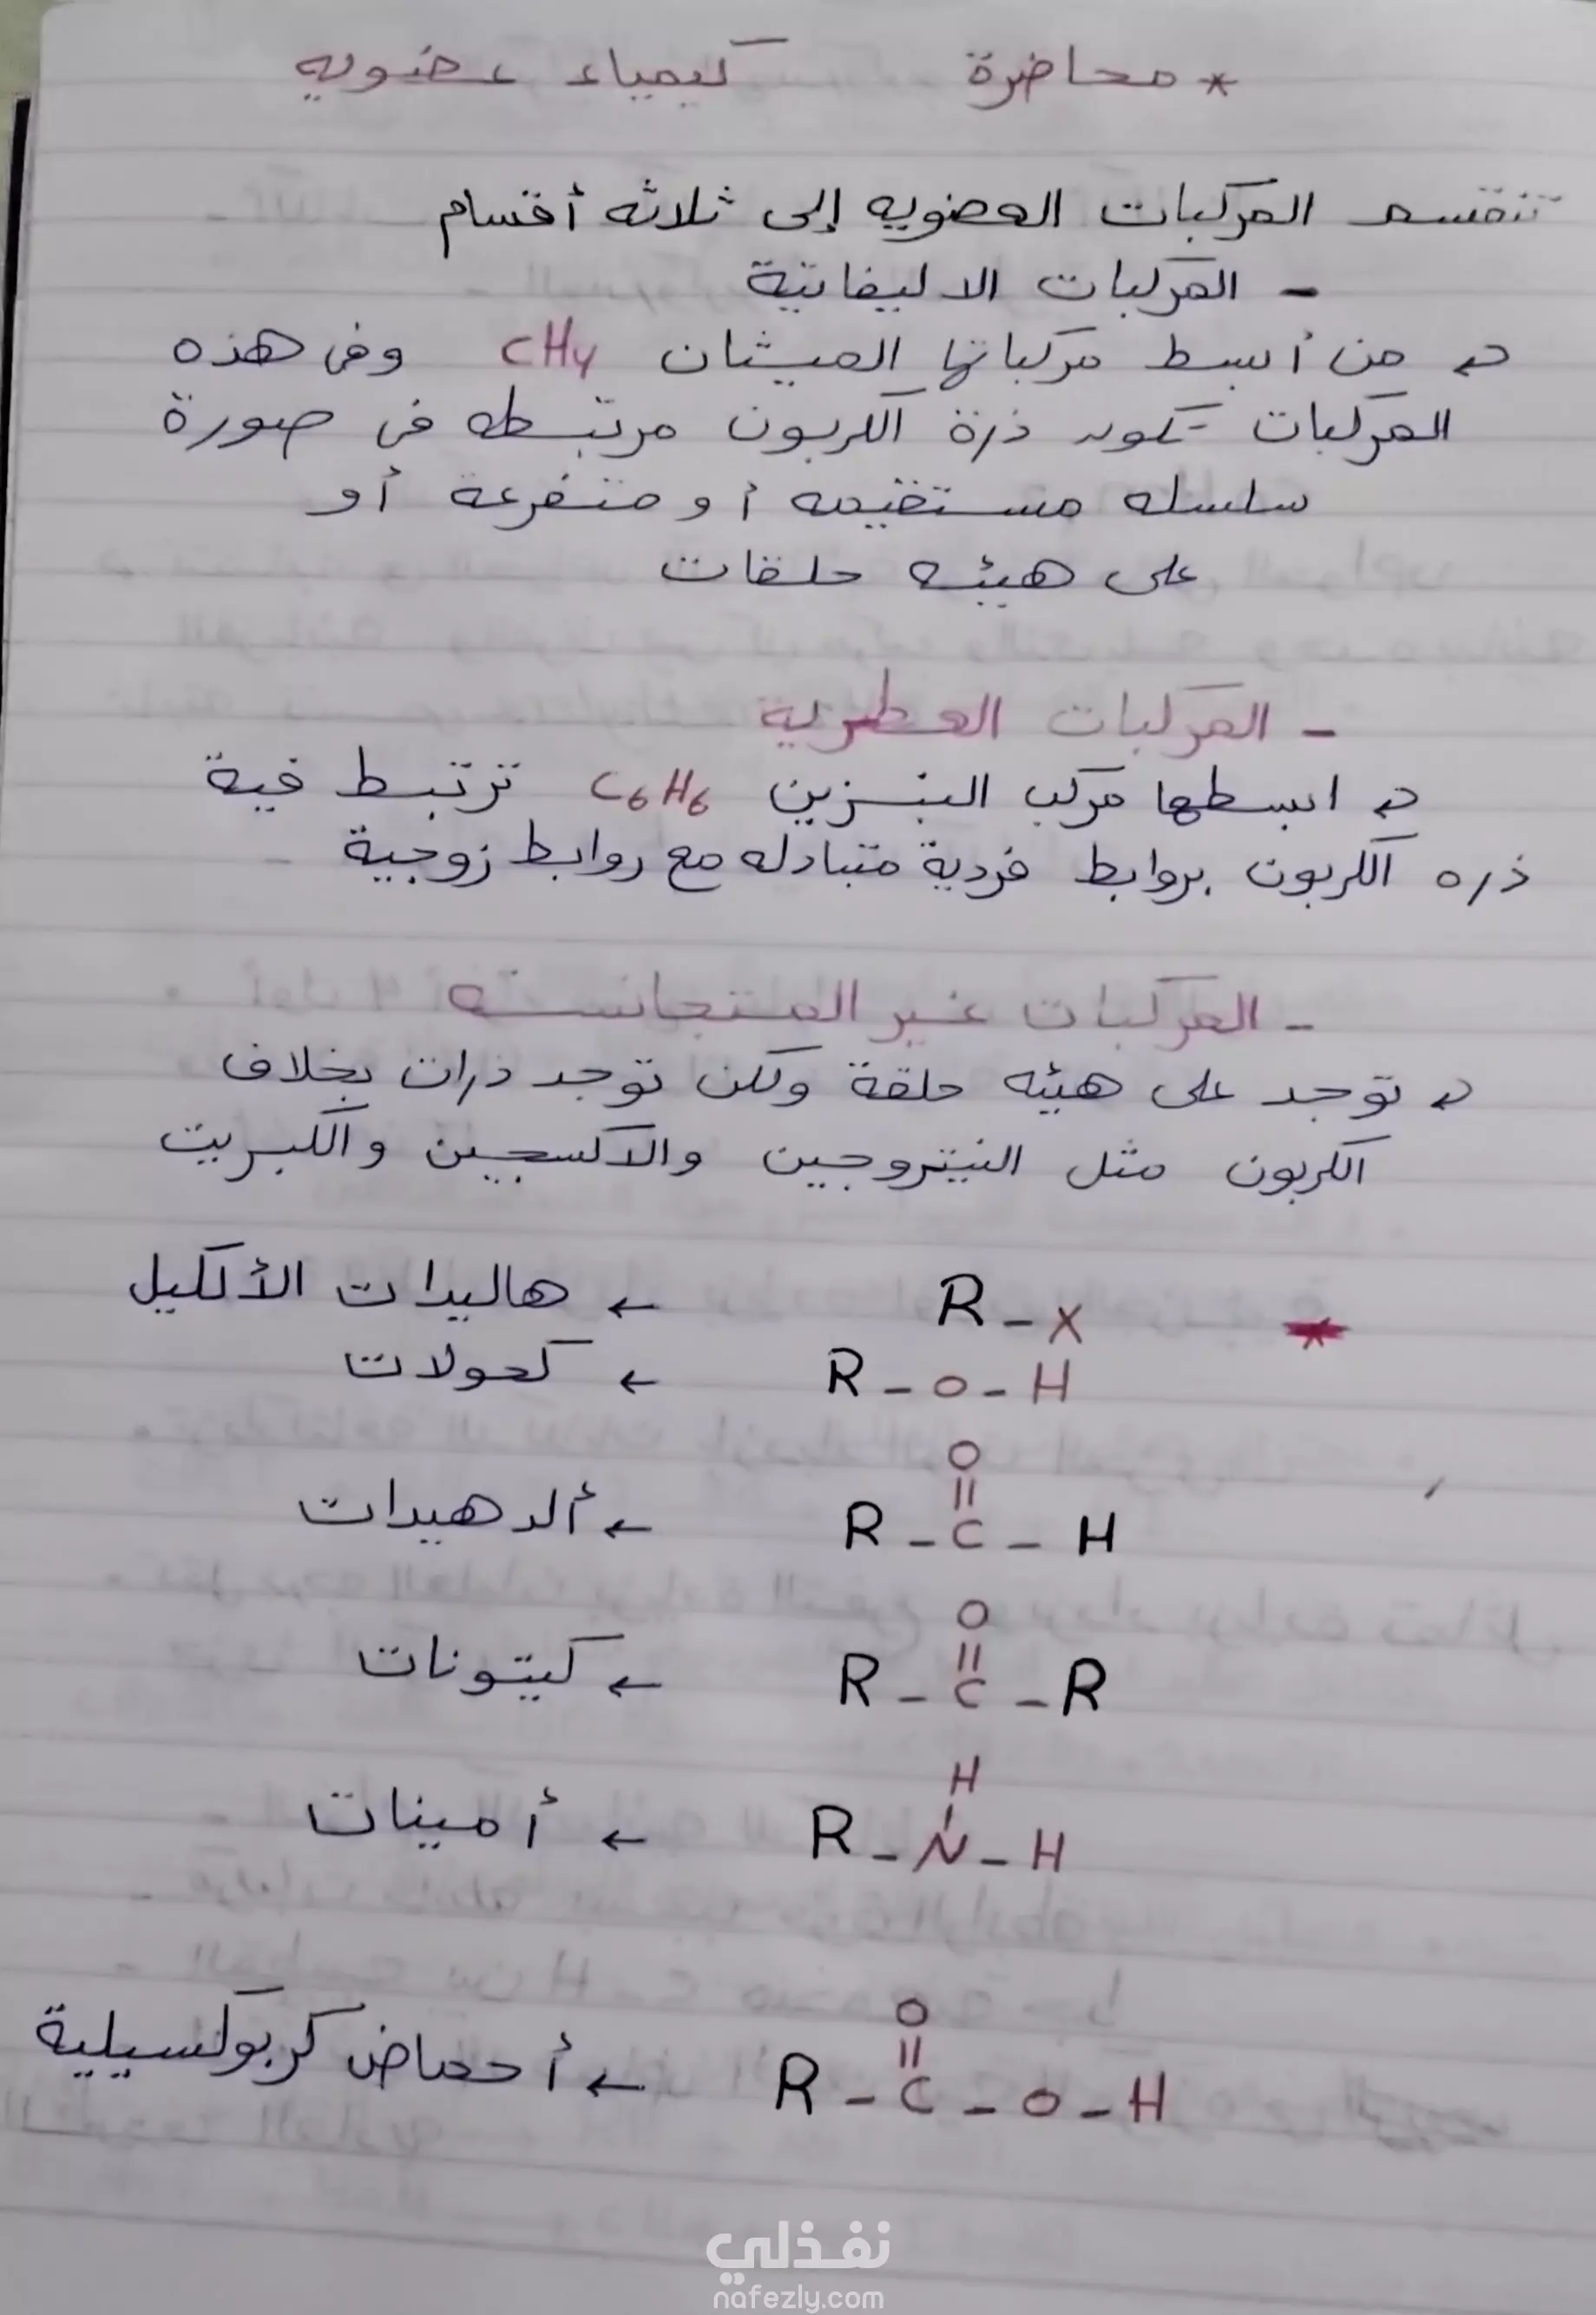 * محاضرة كيمياء عضويه
تنقسم المركبات العضويه إلى ثلاثه أقسام
- المركبات الاليفاتية
من أبسط مركباتها الميثان CH4 وفى هذه
المركبات تكون ذرة الكربون مرتبطه فى صورة
سلسله مستقيمه أو متفرعة أو
على هيئه حلقات
- المركبات العطرية
ابسطها مركب البنزين C6H6 ترتبط فية
ذره الكربون بروابط فردية متبادله مع روابط زوجية
- المركبات غير المتجانسه
توجد على هيئه حلقة ولكن توجد ذرات بخلاف
الكربون مثل النيتروجين والاكسجين والكبريت
* R - X ← هاليدات الألكيل
R - O - H ← كحولات
O
||
R - C - H ← ألدهيدات
O
||
R - C - R ← كيتونات
H
|
R - N - H ← أمينات
O
||
R - C - O - H ← أحماض كربوكسيلية
نفذلي
nafezly.com